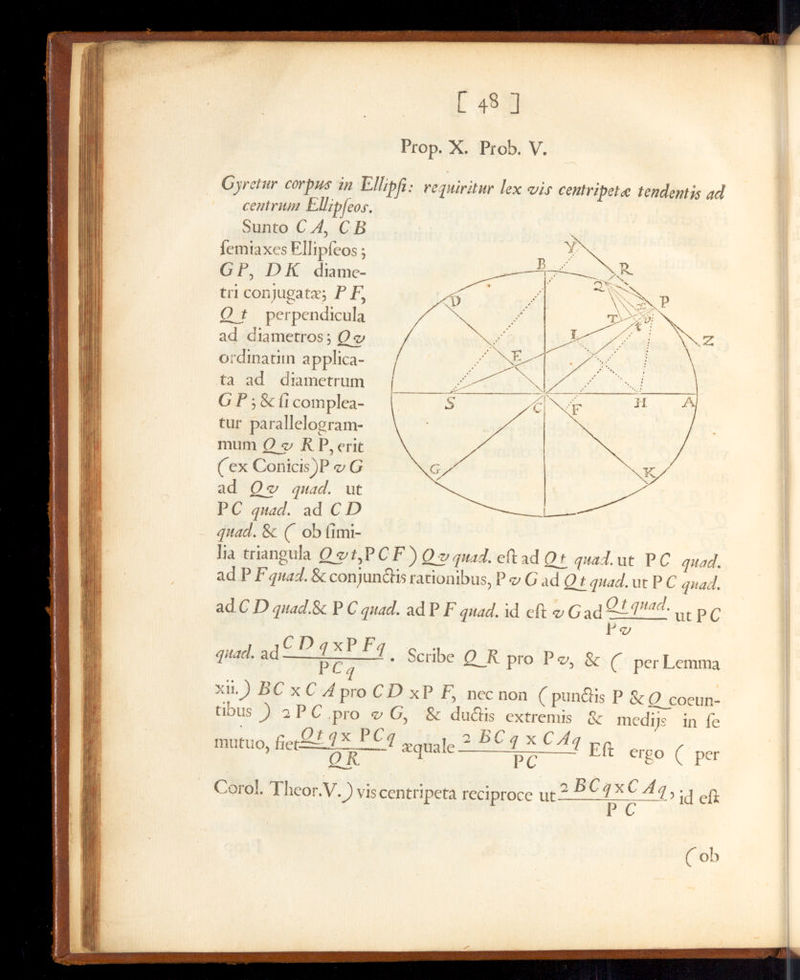 [ 48 ]
Prop. X. Prob. V.
Gyretur corpus in Ellipſi: requiritur lex vis centripetæ tendentis ad
centrum Ellipſeos.
Sunto C A, C B
ſemiaxes Ellipſeos;
G P, D K diame-
tri conjugatæ; P F,
Q t perpendicula
ad diametros; Q v
ordinatim applica-
ta ad diametrum
G P; & ſi complea-
tur parallelogram-
mum Q v R P, erit
(ex Conicis) P v G
ad Q v quad. ut
P C quad. ad C D
quad. & ( ob ſimi-
lia triangula Q v t, P C F ) Q v quad. eſt ad Q t quad. ut P C quad.
ad P F quad. & conjunctis rationibus, P v G ad Q t quad. ut P C quad.
ad C D quad. & P C quad. ad P F quad. id eſt v G ad Q t quad. / P v ut P C
quad. ad C D q x P F q / P C q . Scribe Q R pro P v, & ( per Lemma
xii.) B C x C A pro C D x P F, nec non ( punctis P & Q coeun-
tibus ) 2 P C pro v G, & ductis extremis & medijs in ſe
mutuo, fiet Q t q x P C q / Q R æquale 2 B C q x C A q / P C Eſt ergo ( per
Corol. Theor. V.) vis centripeta reciproce ut 2 B C q x C A q / P C , id eſt
(ob
Y
B
R
Q
D
P
x
T
v
t
I
Z
E
S
C
F
H
A
G
K